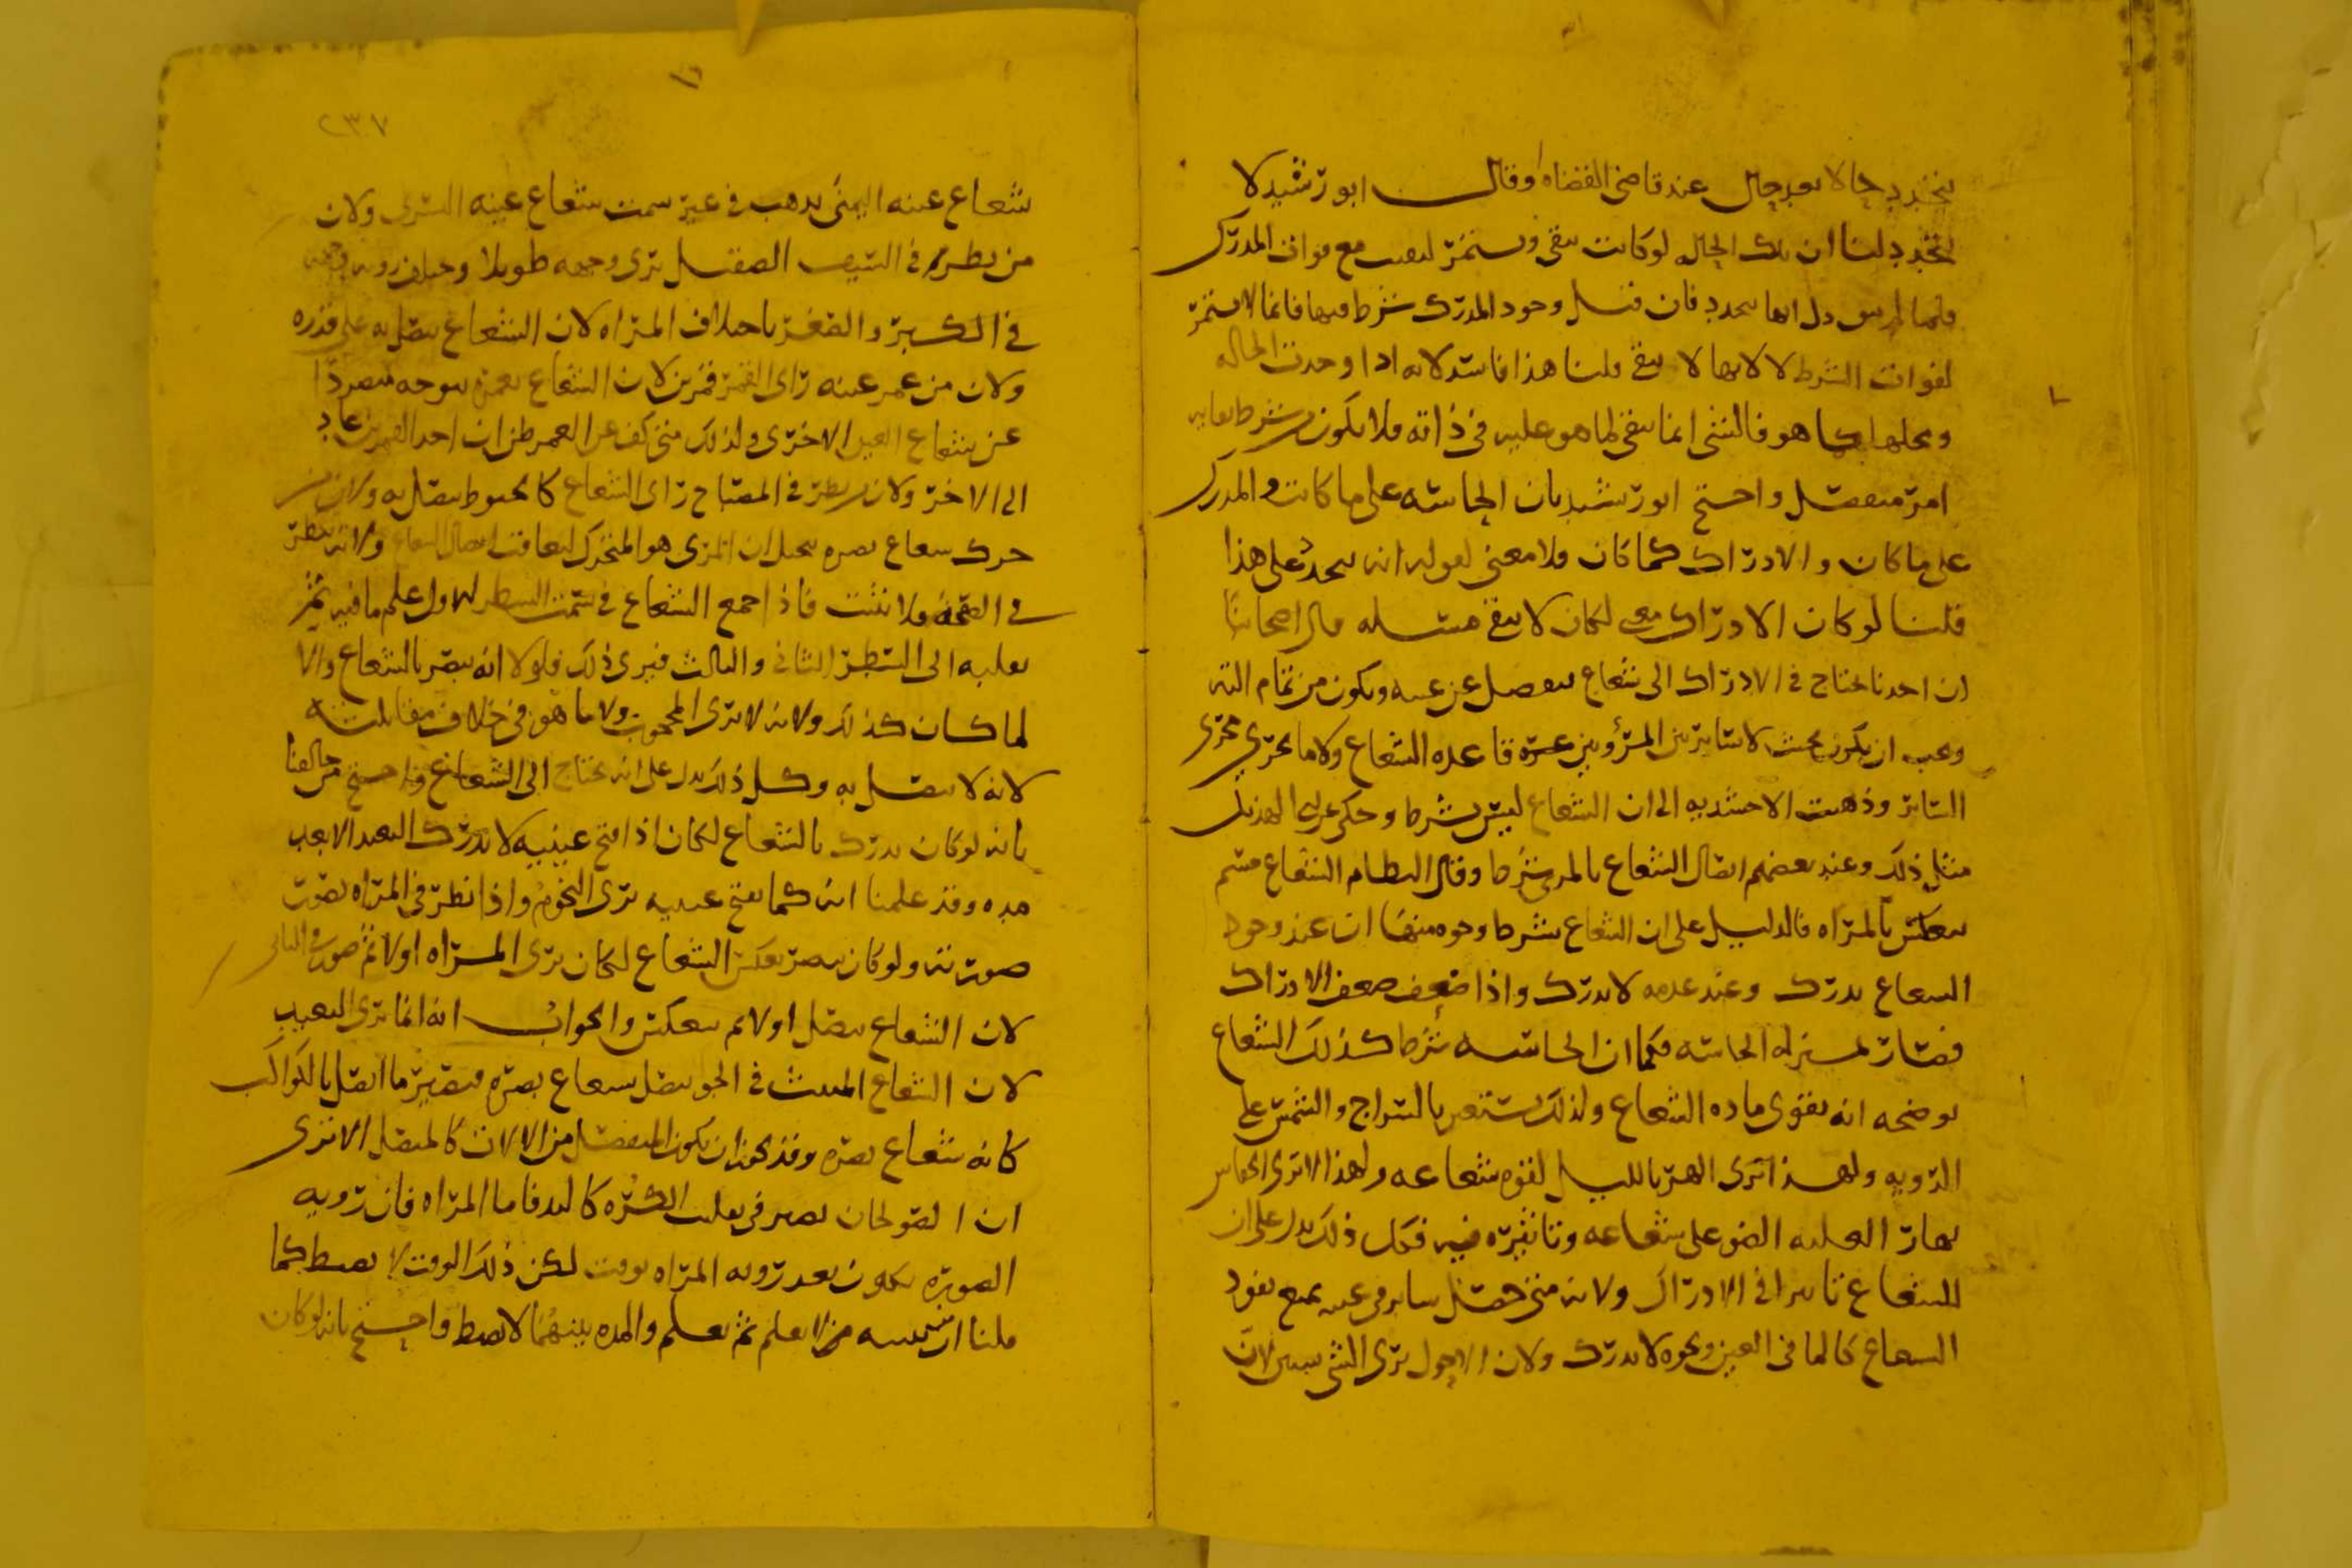 يتجدد حالا بعد حال عند قاضى القضاه وقال ابو رشيد لا
يتجدد لنا ان تلك الحاله لو كانت تبقى وتستمر لبقيت مع فوات المدرك
فلما لم يبق دل انها تتجدد فان قيل وجود المدرك شرط فيها فانما لا تستمر
لفوات الشرط لا لانها لا تبقى قلنا هذا فاسد لانه اذا وجدت الحاله
ومحلها كما هو فالشى انما يبقى لما هو عليه فى ذاته فلا يكون من شرط بقايه
امر منفصل واحتج ابو رشيد بان الحاسه على ما كانت والمدرك
على ما كان والادراك كما كان فلا معنى لقوله انه يتجدد على هذا
قلنا لو كان الادراك معنى لكان لا يبقى مسله قال اصحابنا
ان احدنا يحتاج فى الادراك الى شعاع ينفصل عن عينه ويكون من تمام اليه
ويجب ان يكون بحيث لا ساتر بين المرئ وبين قاعده الشعاع ولا ما يجرى مجرى
الساتر وذهبت الاخشيديه الى ان الشعاع ليس بشرط وحكى عن ابى الهذيل
مثل ذلك وعند بعضهم اتصال الشعاع بالمرى شرط وقال النظام الشعاع جسم
ينعكس بالمراه فالدليل على ان الشعاع شرط وجوه منها ان عند وجود
الشعاع يدرك وعند عدمه لا يدرك واذا ضعف ضعف الادراك
فصار بمنزله الحاسه فكما ان الحاسه شرط كذلك الشعاع
يوضحه انه يقوى ماده الشعاع ولذلك يستعين بالسراج والشمس على
الرويه ولهذا ترى الهر بالليل لقوه شعاعه ولهذا لا ترى الخفاش
نهارا لغلبه الضو على شعاعه وتاثيره فيه فكل ذلك يدل على ان
للشعاع تاثيرا فى الادراك ولانه متى حصل ساتر فى عينه يمنع نفوذ
الشعاع كالما فى العين ونحوه لا يدرك ولان الاحول يرى الشى شيين لان
٢٣٧
شعاع عينه اليمنى يذهب فى غير سمت شعاع عينه اليسرى ولان
من نظر فى السيف الصقيل يرى وجهه طويلا ويختلف رويه وجهه
فى الكبر والصغر باختلاف المراه لان الشعاع يتصل به على قدره
ولان من غمز عينه راى القمر قمرين لان الشعاع بغمزه يتوجه منفردا
عن شعاع العين الاخرى ولذلك متى كف عن الغمز ظن ان احد القمرين عاد
الى الاخر ولان من نظر فى المصباح راى الشعاع كالخيوط يتصل به ولان من
حرك شعاع بصره تخيل ان المرى هو المتحرك لتعاقب اتصال الشعاع ولانه ينظر
فى الصحفه ولا تثبت فاذا جمع الشعاع فى سمت السطر الاول علم ما فيه ثم
يقلبه الى السطر الثانى والثالث فيرى ذلك فلولا انه يبصر بالشعاع والا
لما كان كذلك ولانه لا يرى المحجوب ولا ما هو فى خلاف مقابلته
لانه لا يتصل به وكل ذلك يدل على انه يحتاج الى الشعاع واحتج من خالفنا
بانه لو كان يدرك بالشعاع لكان اذا فتح عينيه لا يدرك البعيد الا بعد
مده وقد علمنا انه كما يفتح عينيه يرى النجوم واذا نظر فى المراه بصورت
صورته ولو كان يبصر بعكس الشعاع لكان يرى المراه اولا ثم صورته فى الثانى
لان الشعاع يتصل اولا ثم ينعكس والجواب انه انما يرى البعيد
لان الشعاع المنبث فى الجو يتصل بشعاع بصره فيصير ما اتصل بالكواكب
كانه شعاع بصره وقد يجوز ان يكون المنفصل من الالات كالمتصل الا ترى
ان الصولجان يصير فى تقليب الكره كاليد فاما المراه فان رويه
الصوره يكون بعد رويه المراه بوقت لكن ذلك الوقت لا يضبط كما
قلنا ان يعلم ثم يعلم والمده بينهما لا يضبط واحتج بانه لو كان